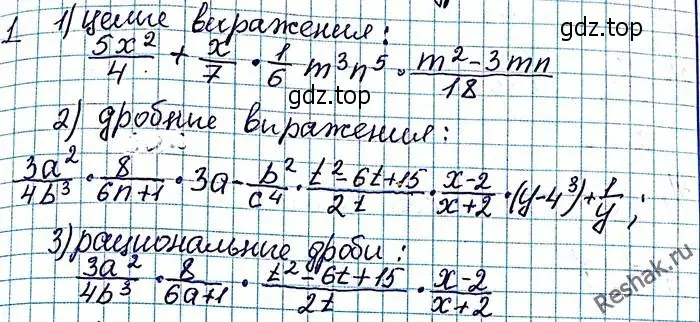 1 1) целые выражения:
5x²/4 + x/7 · 1/6 m³n⁵ · (m²-3mn)/18
gdz.top
gdz.top
2) дробные выражения:
3a²/4b³ · 8/(6n+1) · 3a - b²/c⁴ · (t²-6t+15)/2t · (x-2)/(x+2) · (y-4³)+1/y ;
3) рациональные дроби:
3a²/4b³ · 8/(6a+1) · (t²-6t+15)/2t · (x-2)/(x+2)
Reshak.ru